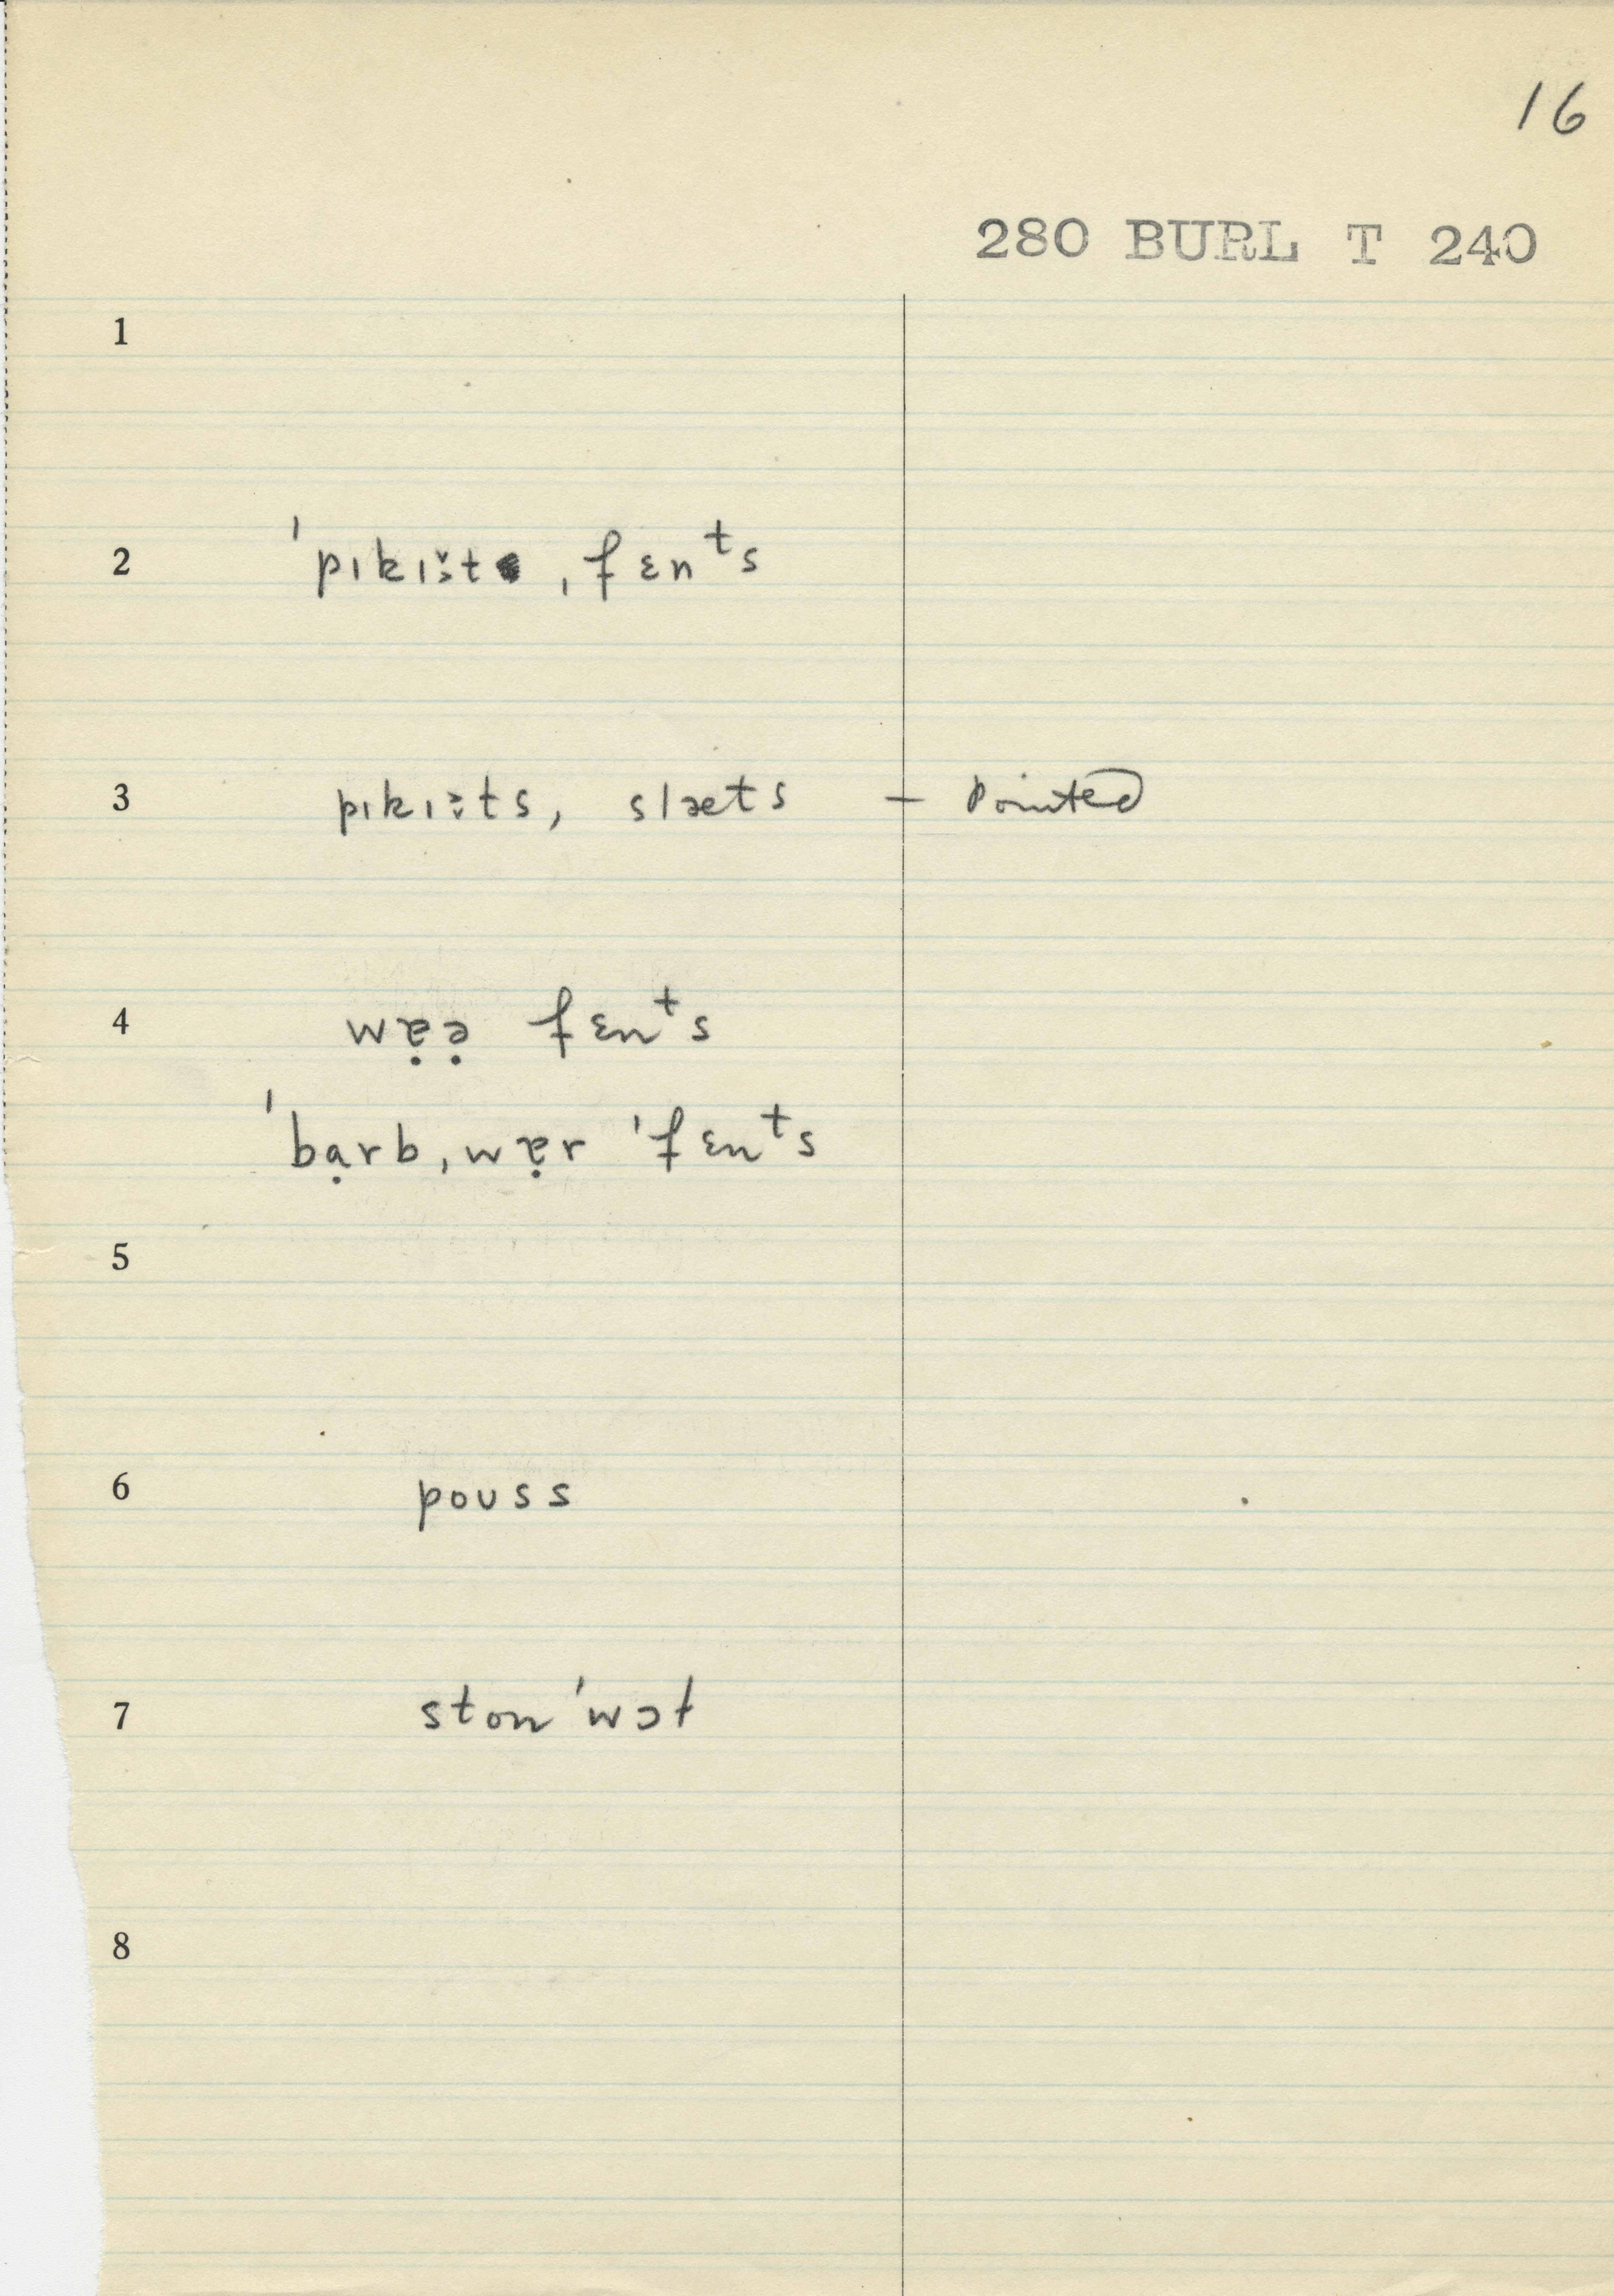 16
280 BURL T 240
1
2 ˈpɪkɪt ˌfɛnᵗs
3 pɪkɪts, slæts – Pointed
4 wɐ̣ə̣ fɛnᵗs
ˈbạrbˌwɐ̣r ˈfɛnᵗs
5
6 pouss
7 ston ˈwɔl
8